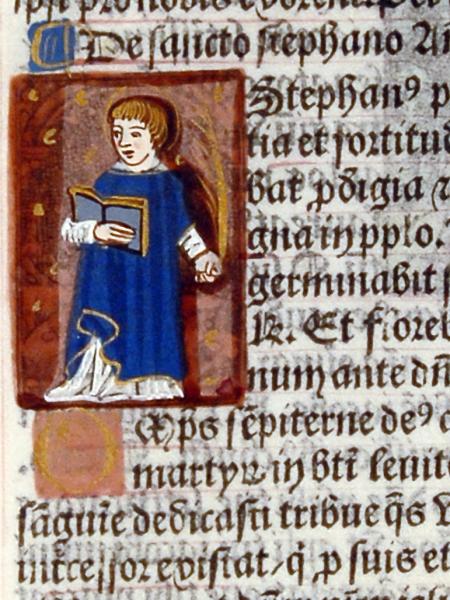 De sancto stephano An
Stephanꝰ p
tia et fortitud
bat ꝓdigia ꝛ
gna in pplo.
germinabit
℟. Et floreb
num ante dn̄
Om̄ps sēpiterne deꝰ
martyꝝ in btī leuite
sāguīe dedicasti tribue q̄s
intercessor existat / q̇ ꝓ suis et